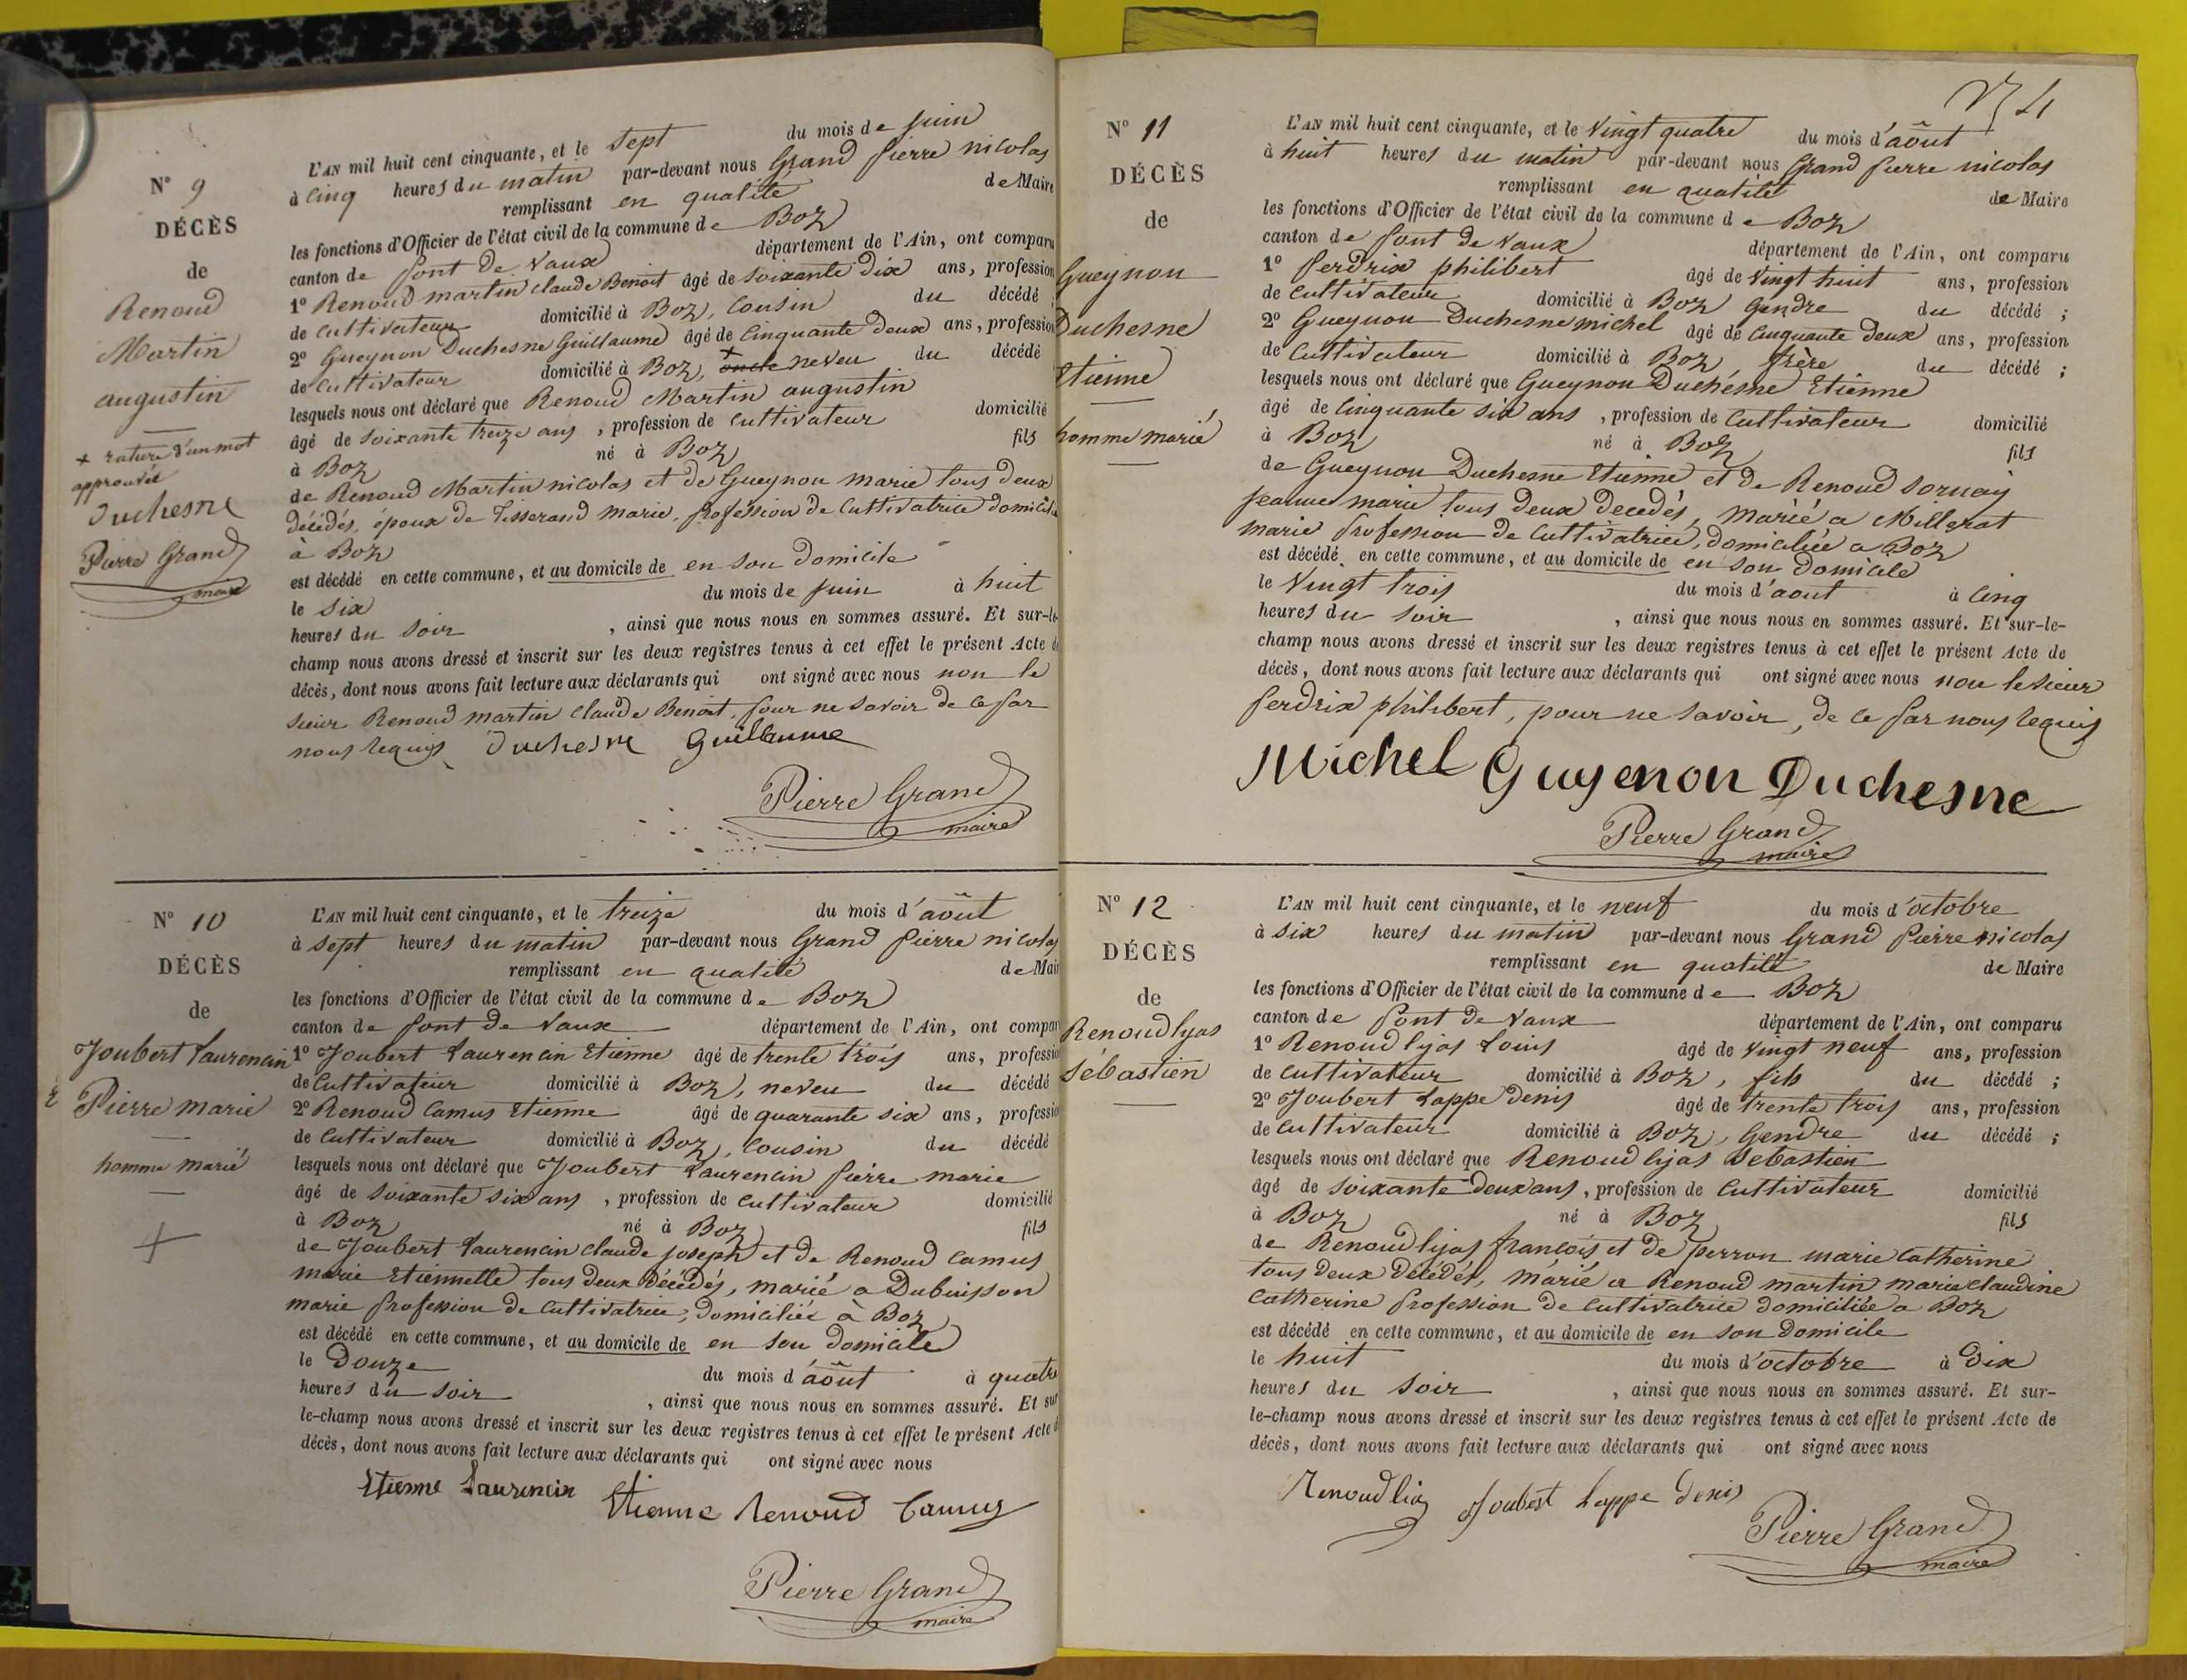 N° 9
DÉCÈS
de
Renoud
Martin
augustin
+ rature d'un mot
approuvée
Duchesne
Pierre Grand
maire
L'AN mil huit cent cinquante, et le sept du mois de juin
à cinq heures du matin par-devant nous Grand Pierre nicolas
remplissant en qualité de Maire
les fonctions d'Officier de l'état civil de la commune de Boz
canton de Pont de Vaux département de l'Ain, ont comparu
1° Renoud martin claude Benoit âgé de soixante dix ans, profession
de cultivateur domicilié à Boz, cousin du décédé ;
2° Gueynon Duchesne Guillaume âgé de cinquante deux ans, profession
de cultivateur domicilié à Boz, + oncle neveu du décédé
lesquels nous ont déclaré que Renoud Martin augustin
âgé de soixante treize ans, profession de cultivateur domicilié
à Boz né à Boz fils
de Renoud Martin nicolas et de Gueynon marie tous deux
décédés, époux de Tisserand marie, profession de cultivatrice domiciliée
à Boz
est décédé en cette commune, et au domicile de en son domicile
le six du mois de juin à huit
heures du soir , ainsi que nous nous en sommes assuré. Et sur-le-
champ nous avons dressé et inscrit sur les deux registres tenus à cet effet le présent Acte de
décès, dont nous avons fait lecture aux déclarants qui ont signé avec nous non le
sieur Renoud martin claude Benoit, pour ne savoir de ce par
nous requis Duchesne Guillaume
Pierre Grand
maire
N° 10
DÉCÈS
de
Joubert Laurencin
Pierre marie
homme marié
+
L'AN mil huit cent cinquante, et le treize du mois d'août
à sept heures du matin par-devant nous Grand Pierre nicolas
remplissant en qualité de Mair
les fonctions d'Officier de l'état civil de la commune de Boz
canton de Pont de Vaux département de l'Ain, ont compar
1° Joubert Laurencin Etienne âgé de trente trois ans, profession
de cultivateur domicilié à Boz, neveu du décédé
2° Renoud Camus Etienne âgé de quarante six ans, profession
de cultivateur domicilié à Boz, cousin du décédé
lesquels nous ont déclaré que Joubert Laurencin pierre marie
âgé de soixante six ans, profession de cultivateur domicilié
à Boz né à Boz fils
de Joubert Laurencin claude joseph et de Renoud Camus
marie Etiennette tous deux décédés, marié a Dubuisson
marie profession de cultivatrice, domiciliée à Boz
est décédé en cette commune, et au domicile de en son domicile
le Douze du mois d'août à quatre
heures du soir , ainsi que nous nous en sommes assuré. Et sur
le-champ nous avons dressé et inscrit sur les deux registres tenus à cet effet le présent Acte d
décès, dont nous avons fait lecture aux déclarants qui ont signé avec nous
Etienne Laurencin Etienne Renoud Camus
Pierre Grand
maire
N° 11
DÉCÈS
de
Gueynon
Duchesne
Etienne
homme marié
L'AN mil huit cent cinquante, et le vingt quatre du mois d'août
à huit heures du matin par-devant nous Grand Pierre nicolas
remplissant en qualité de Maire
les fonctions d'Officier de l'état civil de la commune de Boz
canton de Pont de Vaux département de l'Ain, ont comparu
1° Perdrix philibert âgé de vingt huit ans, profession
de cultivateur domicilié à Boz gendre du décédé ;
2° Gueynon Duchesne michel âgé de cinquante deux ans, profession
de cultivateur domicilié à Boz, frère du décédé ;
lesquels nous ont déclaré que Gueynon Duchesne Etienne
âgé de cinquante six ans, profession de cultivateur domicilié
à Boz né à Boz fils
de Gueynon Duchesne Etienne et de Renoud Sornay
jeanne marie tous deux décédés, marié a Millerat
marie profession de cultivatrice, domiciliée a Boz
est décédé en cette commune, et au domicile de en son domicile
le vingt trois du mois d'aout à cinq
heures du soir , ainsi que nous nous en sommes assuré. Et sur-le-
champ nous avons dressé et inscrit sur les deux registres tenus à cet effet le présent Acte de
décès, dont nous avons fait lecture aux déclarants qui ont signé avec nous non le sieur
Perdrix philibert, pour ne savoir, de ce par nous requis
Michel Guyenon Duchesne
Pierre Grand
maire
N° 12
DÉCÈS
de
Renoud lyas
sébastien
L'AN mil huit cent cinquante, et le neuf du mois d'octobre
à six heures du matin par-devant nous Grand Pierre nicolas
remplissant en qualité de Maire
les fonctions d'Officier de l'état civil de la commune de Boz
canton de Pont de Vaux département de l'Ain, ont comparu
1° Renoud lyas Louis âgé de vingt neuf ans, profession
de cultivateur domicilié à Boz, fils du décédé ;
2° Joubert Lappe Denis âgé de trente trois ans, profession
de cultivateur domicilié à Boz, Gendre du décédé ;
lesquels nous ont déclaré que Renoud lyas Sebastien
âgé de soixante deux ans, profession de cultivateur domicilié
à Boz né à Boz fils
de Renoud lyas francois et de perron marie Catherine
tous deux décédés, marié a Renoud martin marie claudine
Catherine profession de cultivatrice domiciliée a Boz
est décédé en cette commune, et au domicile de en son domicile
le huit du mois d'octobre à dix
heures du soir , ainsi que nous nous en sommes assuré. Et sur-
le-champ nous avons dressé et inscrit sur les deux registres tenus à cet effet le présent Acte de
décès, dont nous avons fait lecture aux déclarants qui ont signé avec nous
Renoud lia Joubert Lappe Denis
Pierre Grand
maire